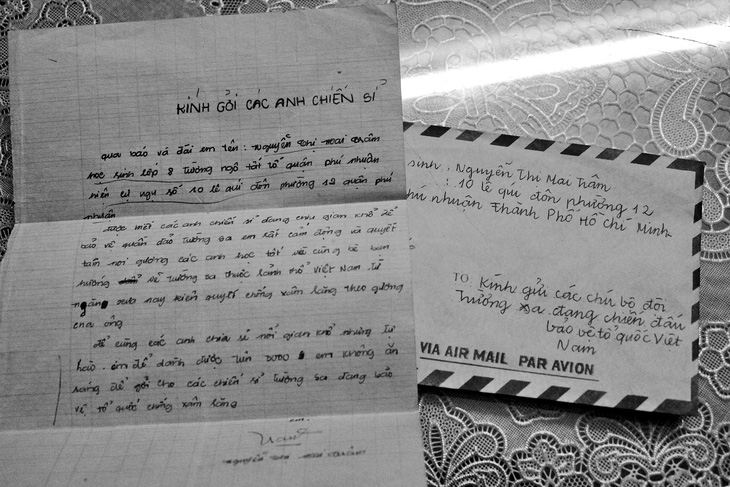 KÍNH GỬI CÁC ANH CHIẾN SĨ
qua báo và đài em tên : Nguyễn Thị Mai Trâm
học sinh lớp 8 trường ngô tất tố quận phú nhuận
hiện cư ngụ số 10 lê quí đôn phường 12 quận phú
nhuận
được biết các anh chiến sĩ đang chịu gian khổ để
bảo vệ quần đảo trường sa em rất cảm động và quyết
tâm noi gương các anh học tốt và cùng bè bạn
hướng về trường sa thuộc lãnh thổ Việt Nam từ
ngàn xưa nay kiên quyết chống xâm lăng theo gương
cha ông
để cùng các anh chiến sĩ nơi gian khổ nhưng tự
hào. em để dành được tiền 2000 đ em không ăn
sáng để gởi cho các chiến sĩ trường sa đang bảo
vệ tổ quốc chống xâm lăng
em
Nguyễn Thị Mai Trâm
sinh : Nguyễn Thi Mai Trâm
: 10 lê quí đôn phường 12
hú nhuận Thành Phố Hồ Chí Minh
TO: Kính gửi các chú bộ đội
Trường xa đang chiến đấu
bảo vệ tổ quốc Việt
Nam
VIA AIR MAIL PAR AVION